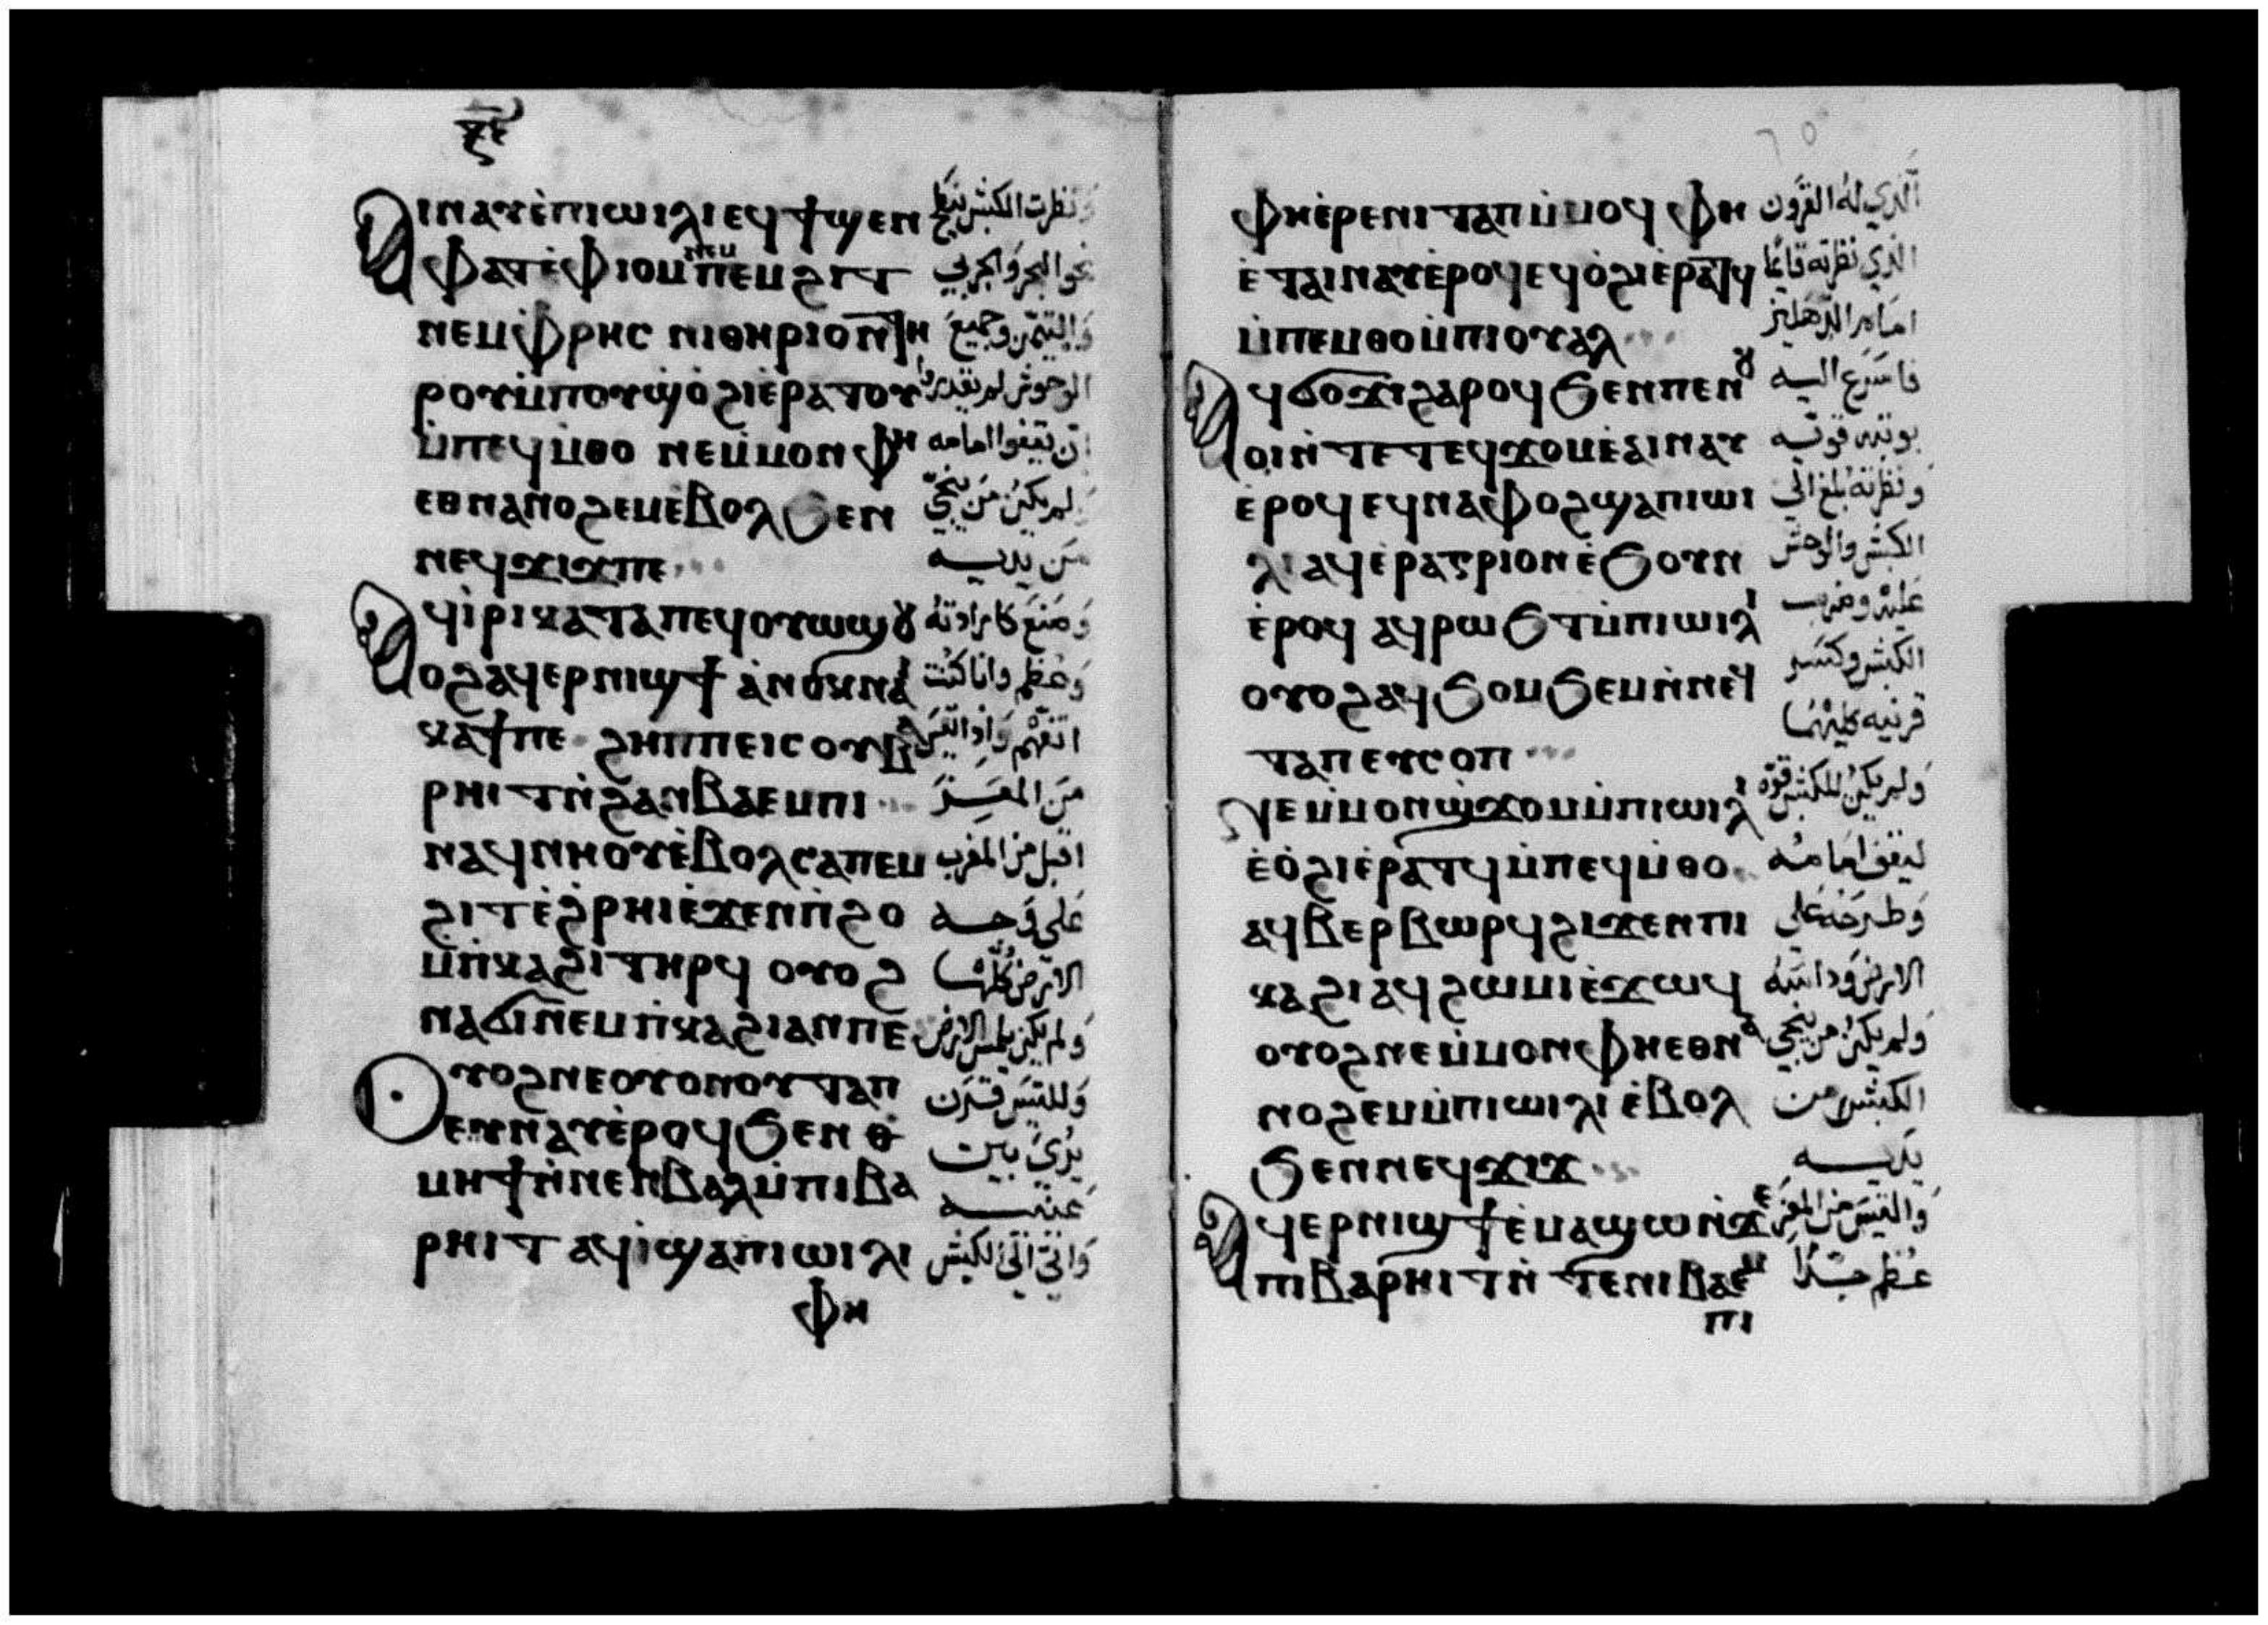 ⲝⲉ
ⲁⲓⲛⲁⲩⲉ̀ⲡⲓⲱⲓⲗⲓⲉϥϯϣⲉⲛ
ⲫⲁⲧⲉ̀ⲫⲓⲟⲙ ⲛⲉⲙ ⲡⲉⲙϩⲓⲧ
ⲛⲉⲙⲫⲣⲏⲥ ⲛⲓⲑⲏⲣⲓⲟⲛⲧⲏ
ⲣⲟⲩⲙ̀ⲡⲟⲩϣ̀ⲟϩⲓⲉ̀ⲣⲁⲧⲟⲩ
ⲙ̀ⲡⲉϥⲙ̀ⲑⲟ ⲛⲉⲙ̀ⲙⲟⲛⲫⲏ
ⲉⲑⲛⲁⲛⲟϩⲉⲙⲉ̀ⲃⲟⲗϧⲉⲛ
ⲛⲉϥϫⲓϫⲡⲉ
ⲁϥⲓ̀ⲣⲓⲕⲁⲧⲁⲡⲉϥⲟⲩⲱϣⲟⲩ
ⲟϩⲁϥⲉⲣⲛⲓϣϯ ⲁ̀ⲛⲟⲕⲛⲁⲓ
ⲕⲁϯⲡⲉ ϩⲏⲡⲡⲉⲓⲥⲟⲩⲃⲁ
ⲣⲏⲓⲧⲛ̀ϩⲁⲛⲃⲁⲉⲙⲡⲓ
ⲛⲁϥⲛⲏⲟⲩⲉ̀ⲃⲟⲗⲥⲁⲡⲉⲙ
ϩⲓⲧⲉ̀ϩⲣⲏⲓⲉ̀ϫⲉⲛⲡ̀ϩⲟ
ⲙ̀ⲡⲕⲁϩⲓⲧⲏⲣϥ ⲟⲩⲟϩ
ⲛⲁϭⲓⲛⲉⲙⲡ̀ⲕⲁϩⲓⲁⲛⲡⲉ
ⲟⲩⲟϩⲛⲉⲟⲩⲟⲛⲟⲩⲧⲁⲡ
ⲉⲩⲛⲁⲩⲉ̀ⲣⲟϥϧⲉⲛ ⲑ̀
ⲙⲏϯⲛ̀ⲛⲉⲛⲃⲁⲗⲙ̀ⲡⲓⲃⲁ
ⲣⲏⲓⲧ ⲁϥⲓ̀ϣⲁⲡⲓⲱⲓⲗⲓ
ⲫⲏ
ونظرت الكبش ينطح
نحو البحر والبحري
والتيمن وجميع
الوحوش لم يقدروا
ان يقفوا امامه
لم يكن من ينجي
من يديه
وصنع كارادته
وعظم وانا كنت
اتفهم واذا تيس
من المعز
اقبل من المغرب
على وجه
الارض كلها
ولم يكن يلمس الارض
وللتيس قرن
يرى بين
عينيه
واتى الى الكبش
ⲫⲏⲉ̀ⲣⲉⲛⲓⲧⲁⲡⲙ̀ⲙⲟϥ ⲫⲏ
ⲉ̀ⲧⲁⲓⲛⲁⲩⲉ̀ⲣⲟϥⲉϥⲟ̀ϩⲓⲉ̀ⲣⲁⲧϥ
ⲙ̀ⲡⲉⲙⲑⲟⲙ̀ⲡⲓⲟⲩⲁⲗ
ⲁϥϭⲟϫⲓϩⲁⲣⲟϥϧⲉⲛⲡⲉⲛⲟⲩ
ⲟⲓⲛ̀ⲧⲉⲧⲉϥϫⲟⲙⲉ̀ⲁⲓⲛⲁⲩ
ⲉ̀ⲣⲟϥⲉϥⲛⲁⲫⲟϩϣⲁⲡⲓⲱⲓ
ⲗⲓⲁϥⲉ̀ⲣⲁⲅⲣⲓⲟⲛⲉ̀ϧⲟⲩⲛ
ⲉ̀ⲣⲟϥ ⲁϥⲣⲱϧⲧⲙ̀ⲡⲓⲱⲓⲗⲓ
ⲟⲩⲟϩⲁϥϧⲟⲙϧⲉⲙⲛ̀ⲛⲉϥ
ⲧⲁⲡⲉⲩⲥⲟⲡ
ⲛⲉⲙ̀ⲙⲟⲛϣ̀ϫⲟⲙⲙ̀ⲡⲓⲱⲓⲗⲓ
ⲉ̀ⲟ̀ϩⲓⲉ̀ⲣⲁⲧϥⲙ̀ⲡⲉϥⲙ̀ⲑⲟ
ⲁϥⲃⲉⲣⲃⲱⲣϥϩⲓϫⲉⲛⲡⲓ
ⲕⲁϩⲓⲁϥϩⲱⲙⲓⲉ̀ϫⲱϥ
ⲟⲩⲟϩⲛⲉⲙ̀ⲙⲟⲛⲫⲏⲉⲑⲛⲁ
ⲛⲟϩⲉⲙⲙ̀ⲡⲓⲱⲓⲗⲓ ⲉ̀ⲃⲟⲗ
ϧⲉⲛⲛⲉϥϫⲓϫ
ⲁϥⲉⲣⲛⲓϣϯⲉ̀ⲙⲁϣⲱⲛ̀ϫⲉ
ⲡⲓⲃⲁⲣⲏⲓⲧⲛ̀ⲧⲉⲛⲓⲃⲁⲉⲙ
ⲡⲓ
الذي له القرون
الذي نظرته قايما
امام الدهليز
فاسرع اليه
بوثبه قوته
ونظرته بلغ الى
الكبش والوحش
عليه وضرب
الكبش وكسر
قرنيه كليهما
ولم يكن للكبش قوة
ليقف امامه
وطرحه على
الارض وداسه
ولم يكن من ينجي
الكبش من
يديه
والتيس من المعز
عظم جدا